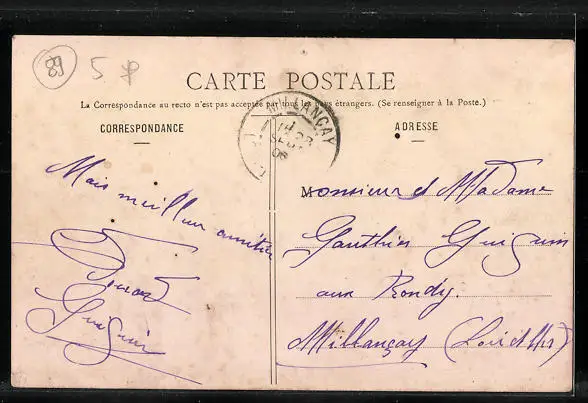 89
5
CARTE POSTALE
La Correspondance au recto n'est pas acceptée par tous les pays étrangers. (Se renseigner à la Poste.)
CORRESPONDANCE
ADRESSE
MILLANÇAY
06
Mais meilleur amitié
Guignin
Monsieur et Madame
Gauthier Guignin
aux Rondy.
Millançay (Loir et Cher)